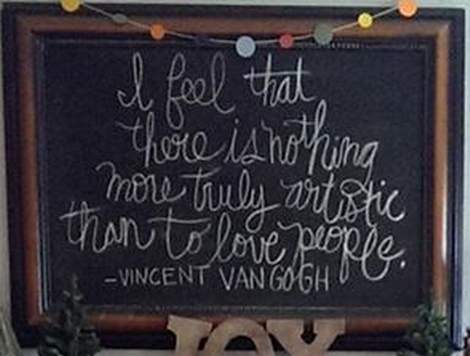 I feel that
there is nothing
more truly artistic
than to love people.
-VINCENT VAN GOGH
JOY